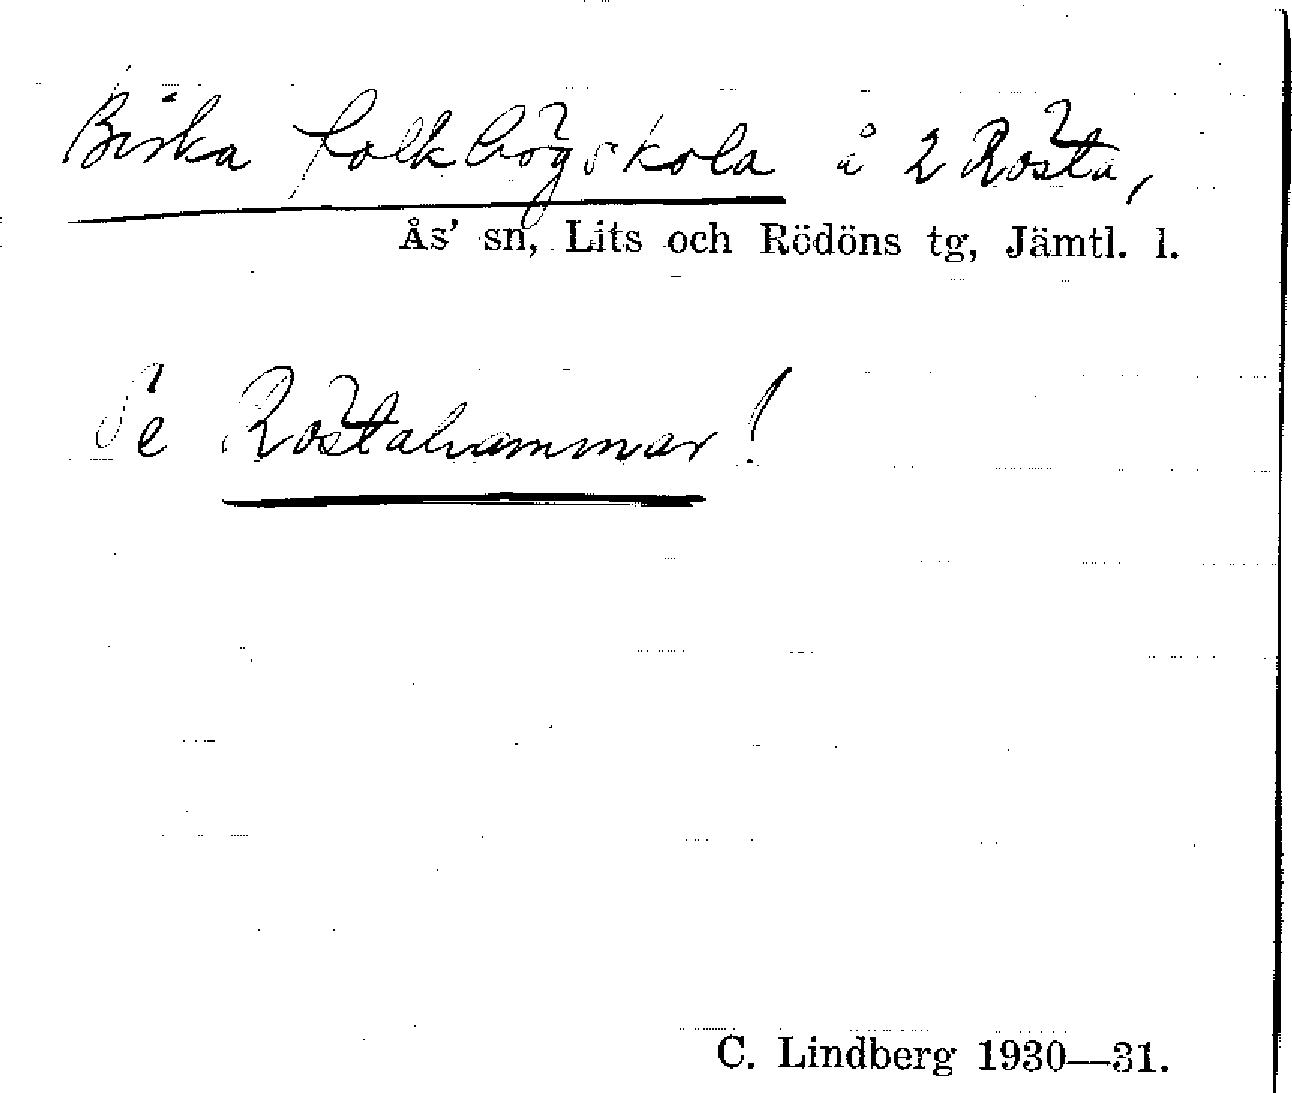 Birka folkhögskola å 2 Rösta,
Ås' sn, Lits och Rödöns tg, Jämtl. l.
Se Röstahammar!
C. Lindberg 1930—31.